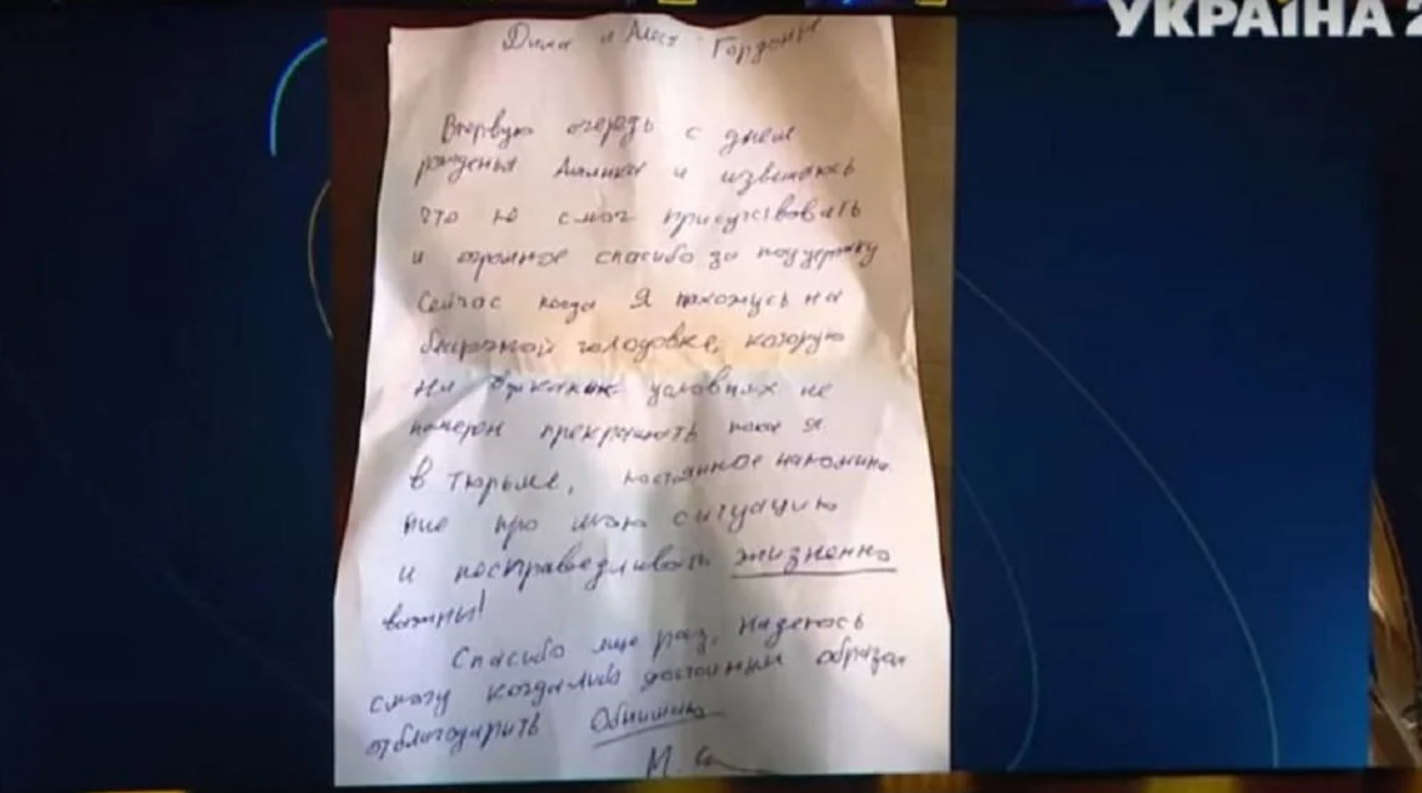 УКРАЇНА 2
Дима и Алеся Гордоны
Впервую очередь с днем
рожденья и извеняюсь
что не смог присутствовать
и огромное спасибо за поддержку
Сейчас когда Я нахожусь на
голодовке, которую
ни условиях не
намерен прекращать пока я
в тюрьме, постоянное напомина
ние про мою ситуацию
и несправедливость жизненно
важны!
Спасибо еще раз, надеюсь
смогу когдалибо достойным образом
отблагодарить Обнимаю
М